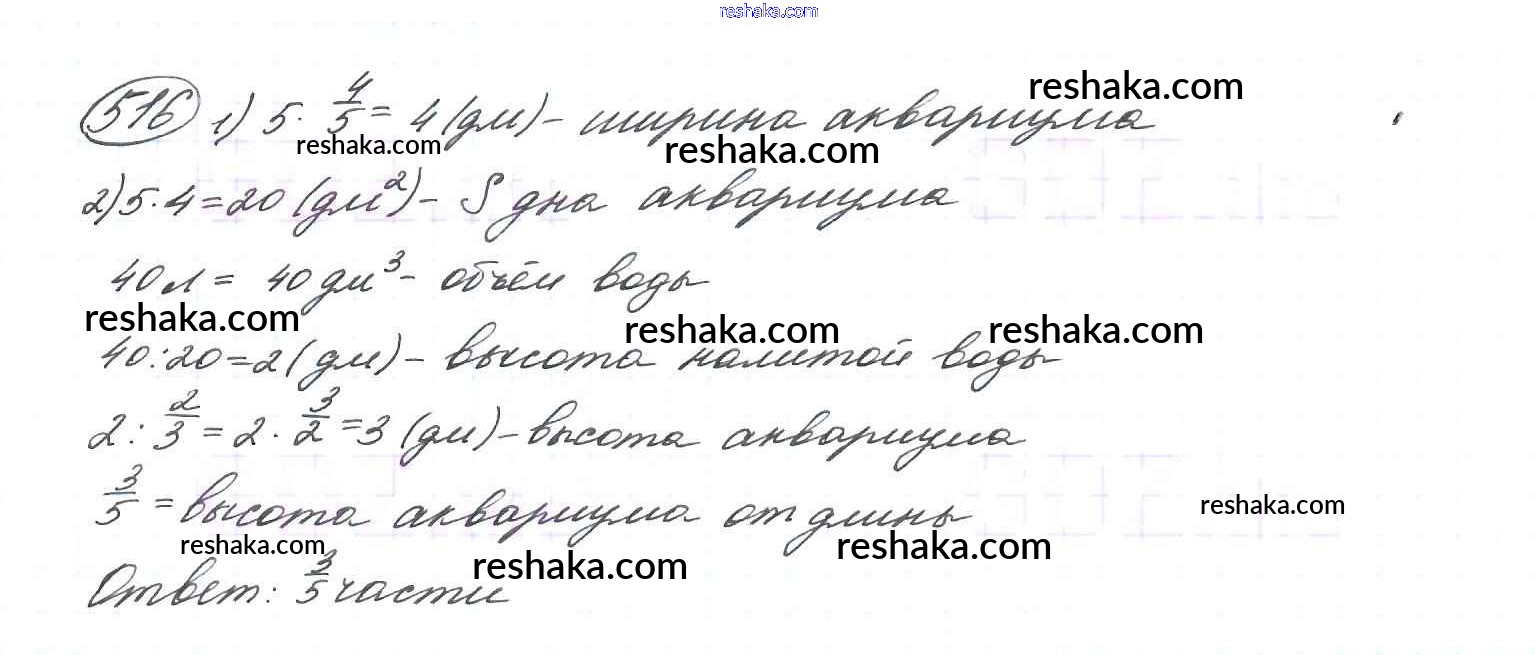 reshaka.com
516 1) 5 · 4/5 = 4 (дм) - ширина аквариума
reshaka.com
reshaka.com
reshaka.com
2) 5 · 4 = 20 (дм²) - S дна аквариума
40 л = 40 дм³ - объём воды
reshaka.com
reshaka.com
reshaka.com
40 : 20 = 2 (дм) - высота налитой воды
2 : 2/3 = 2 · 3/2 = 3 (дм) - высота аквариума
3/5 = высота аквариума от длины
reshaka.com
reshaka.com
reshaka.com
reshaka.com
Ответ: 3/5 части